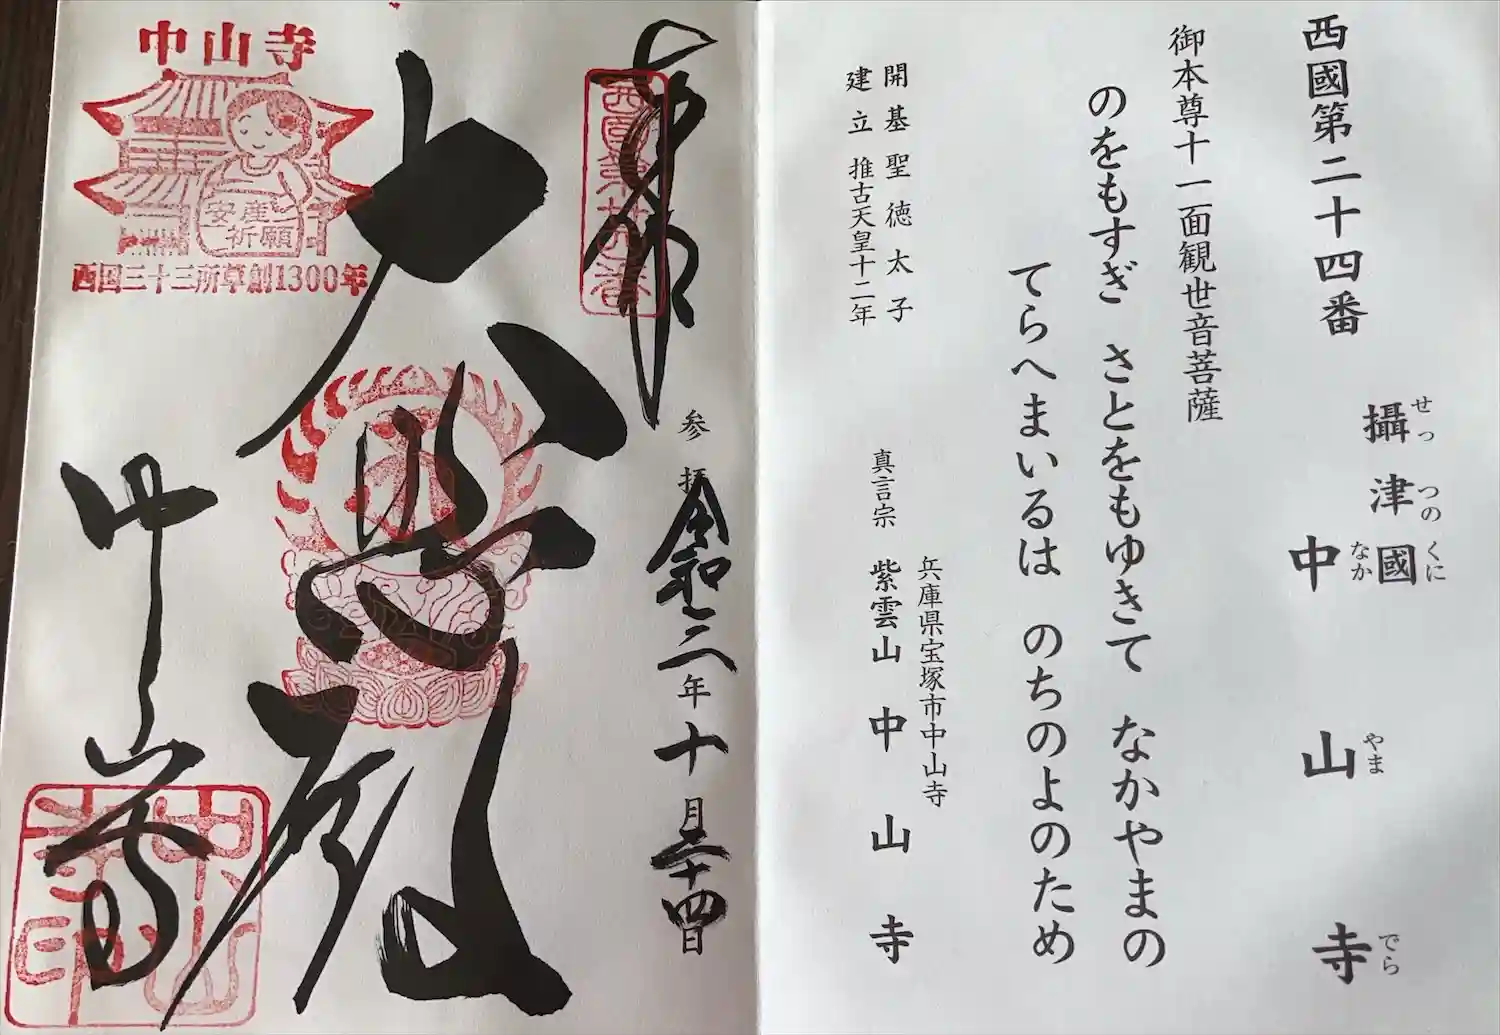 西國第二十四番
攝津國
せっつのくに
中山寺
なかやまでら
御本尊十一面観世音菩薩
のをもすぎ さとをもゆきて なかやまの
てらへまいるは のちのよのため
開基 聖徳太子
建立 推古天皇十二年
兵庫県宝塚市中山寺
真言宗 紫雲山中山寺
奉拝
西国第廿四番
参拝 令和二年十月二十四日
大悲殿
中山寺
中山寺印
中山寺
安産祈願
西国三十三所草創1300年